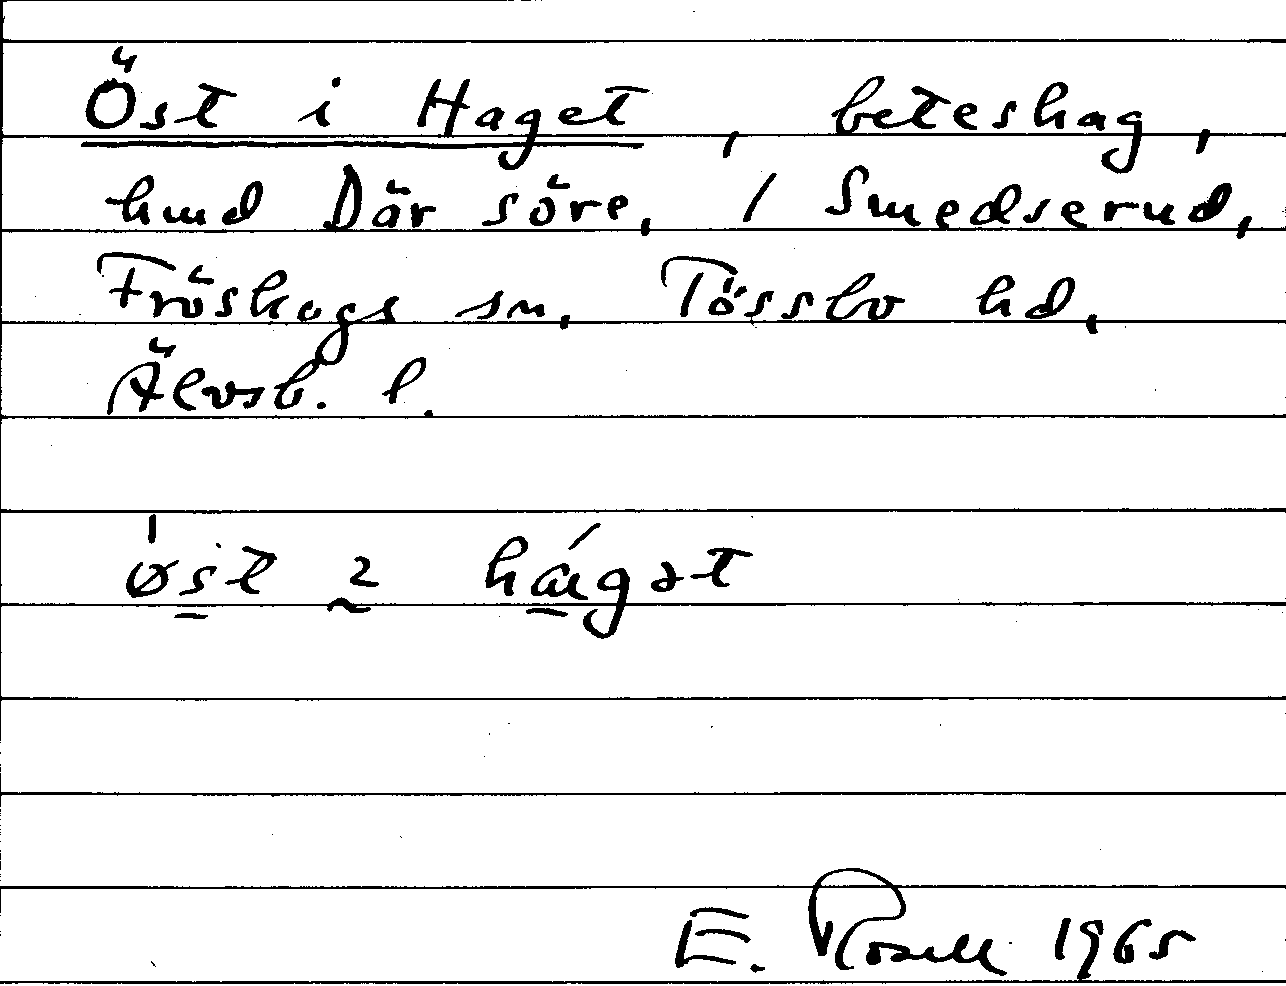 Öst i Haget, beteshag,
hmd Där söre, 1 Smedserud,
Fröskogs sn. Tössbo hd,
Älvsb. l.
E. Rosell 1965